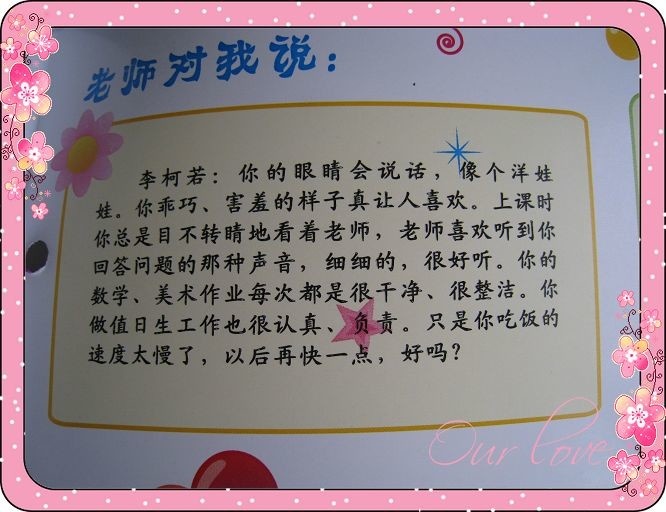 老师对我说：
李柯若：你的眼睛会说话，像个洋娃
娃。你乖巧、害羞的样子真让人喜欢。上课时
你总是目不转睛地看着老师，老师喜欢听到你
回答问题的那种声音，细细的，很好听。你的
数学、美术作业每次都是很干净、很整洁。你
做值日生工作也很认真、负责。只是你吃饭的
速度太慢了，以后再快一点，好吗？
Our love